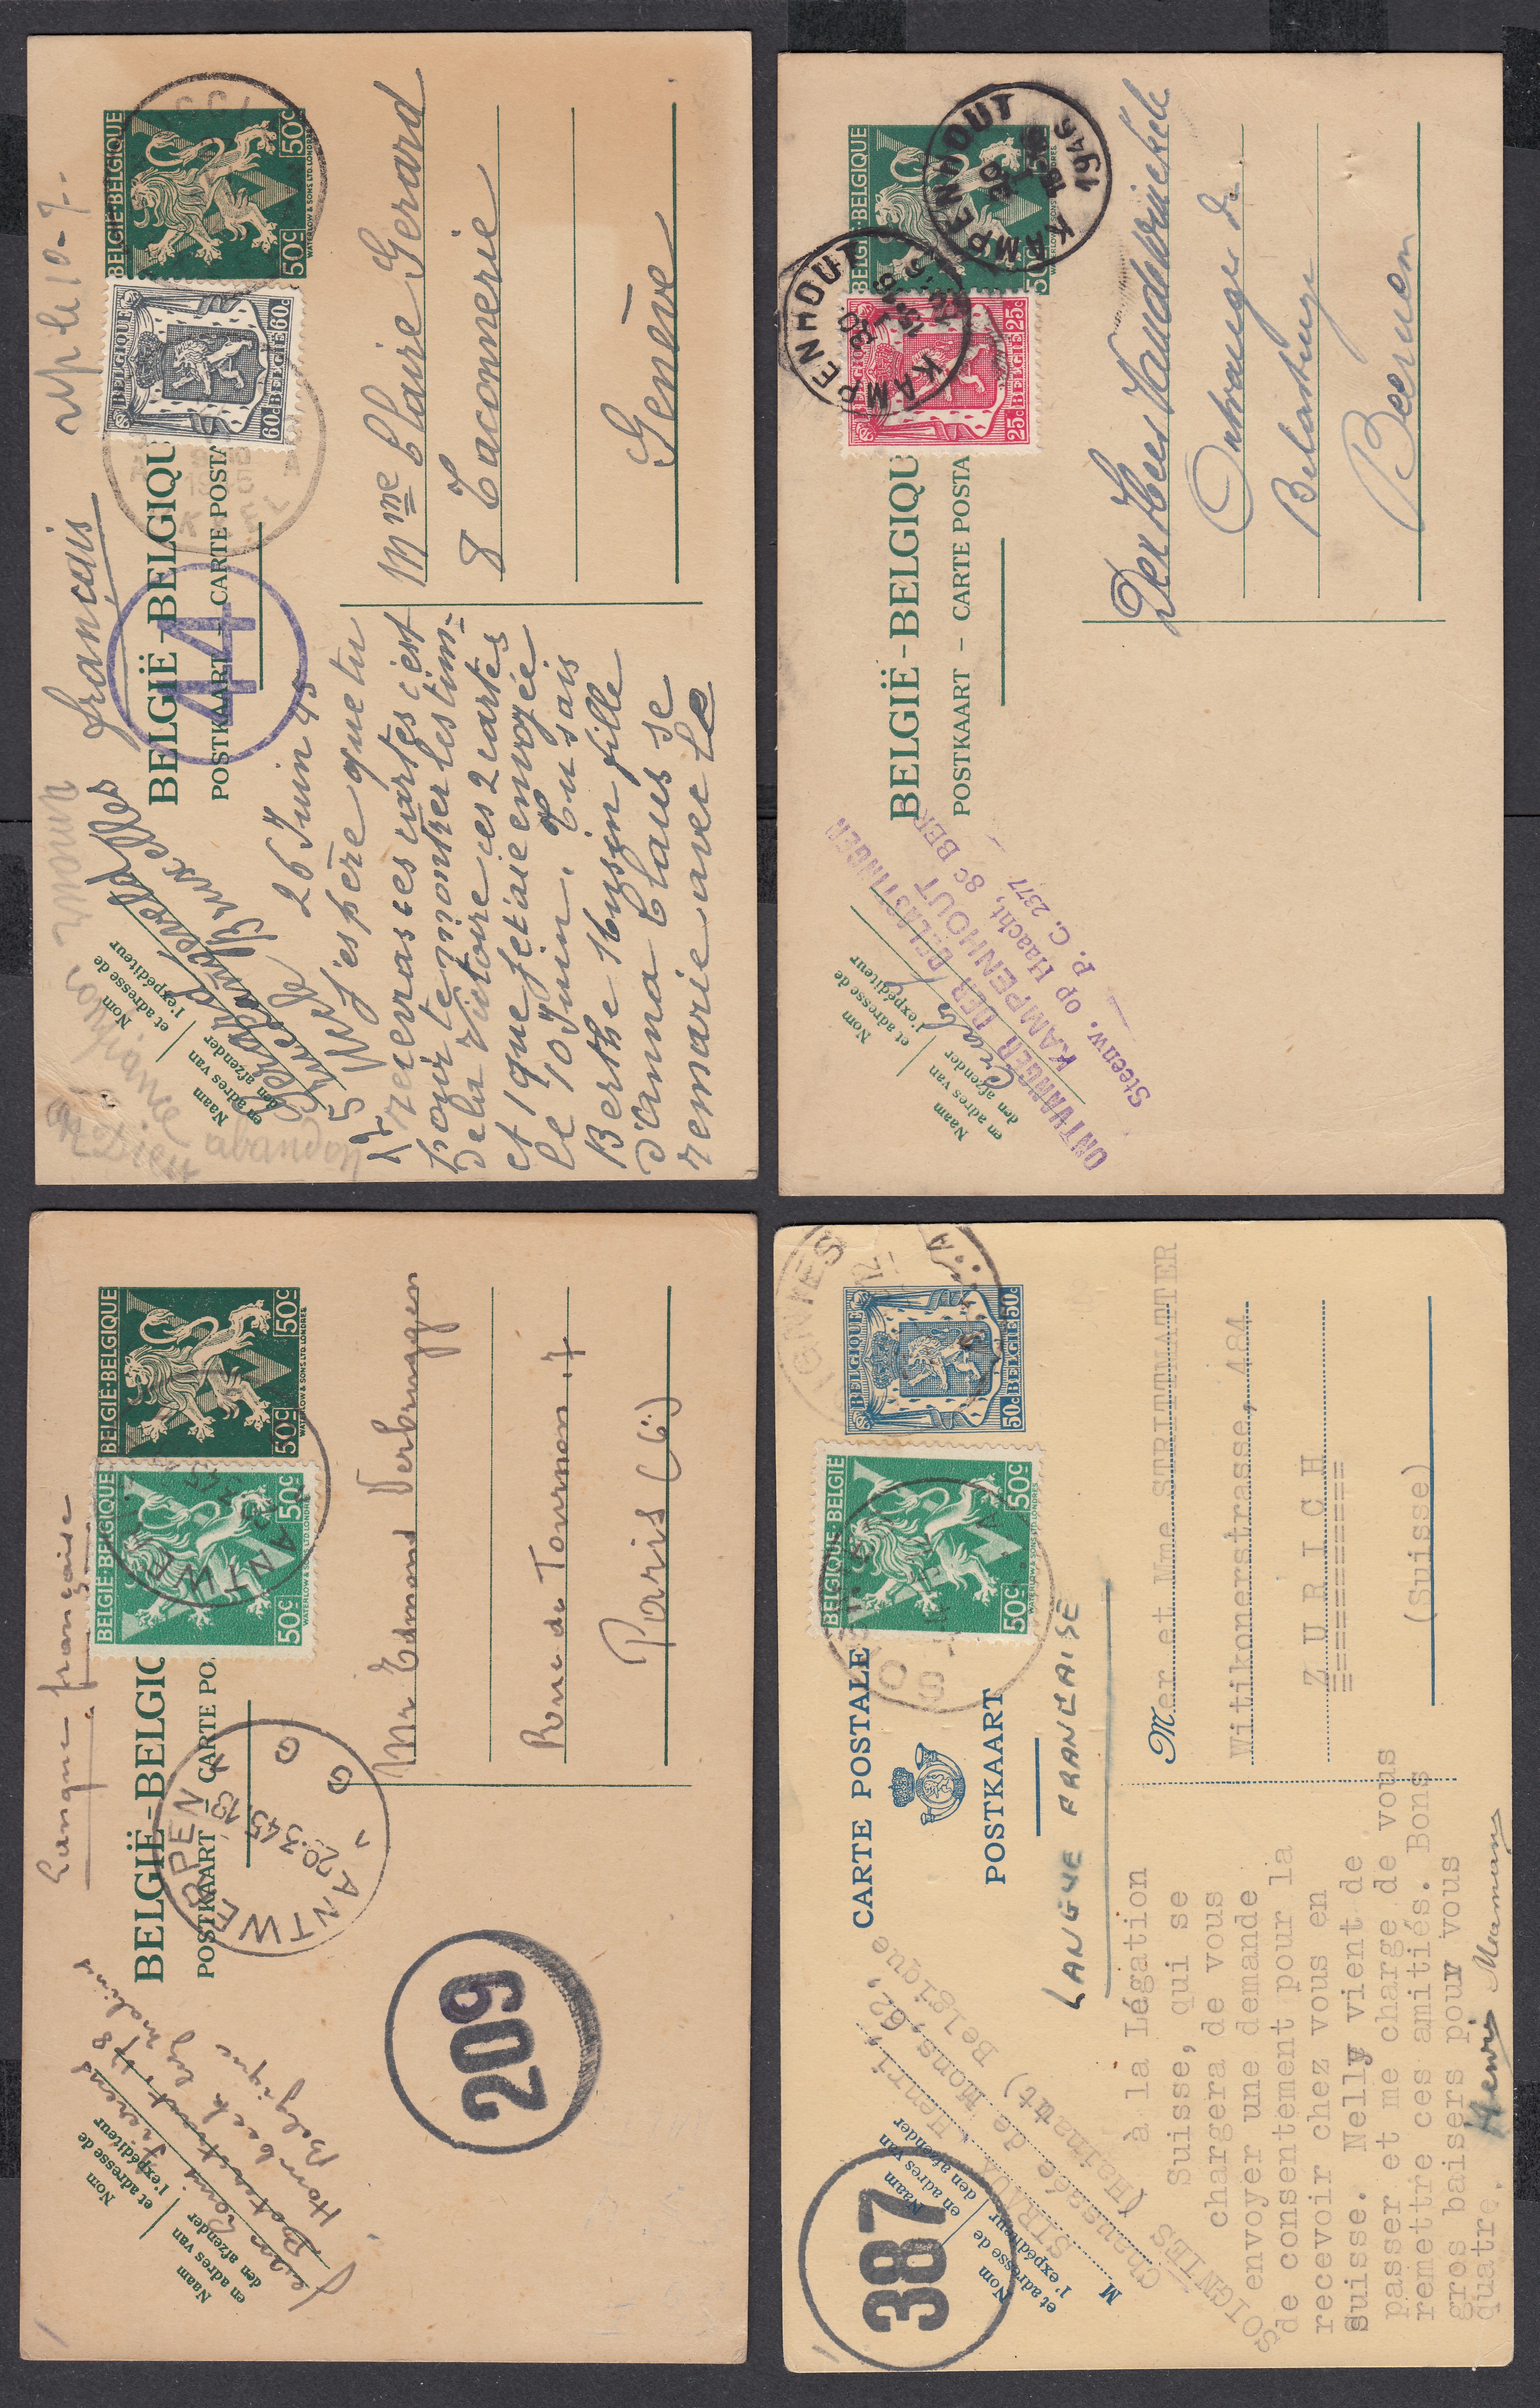 rép le 10-7-
français
BELGIË-BELGIQUE
50c 50c
WATERLOW & SONS LTD. LONDRES
BELGIQUE
60c BELGIE 60c
BELGIË-BELGIQU
POSTKAART - CARTE POSTA
44
Nom
et adresse de
l'expéditeur
Naam
en adres van
den afzender
Bruxelles
26 Juin 45
J'espère que tu
recevras ces cartes c'est
pour te montrer les tim-
de la Victoire ces 2 cartes
et 1 que j'étaie envoyée
le 10 Juin. Tu sais
Berthe fille
d'Anna Claus se
remarie avec le
Mme Claire Gerard
8 Taconnerie
Genève
BELGIË-BELGIQUE
50c
BELGIQUE
25c BELGIË 25c
KAMPENHOUT
1946
KAMPENHOUT
BELGIË-BELGIQU
POSTKAART - CARTE POSTA
Nom
et adresse de
l'expéditeur
Naam
en adres van
den afzender
ONTVANGER DER BELASTINGEN
KAMPENHOUT
Steenw. op Haacht, 8c BER
P. C. 2377
Den Heer
Ontvanger der
Belastingen
Beernem
Langue française
BELGIË-BELGIQUE
50c 50c
WATERLOW & SONS LTD. LONDRES
BELGIE-BELGIQUE
50c 50c
WATERLOW & SONS LTD. LONDRES
BELGIË-BELGIQ
POSTKAART CARTE PO
ANTWERPEN
20.3.45
209
Nom
et adresse de
l'expéditeur
Naam
en adres van
den afzender
Hombeek
Belgique
Mr Edmond Verbruggen
Rue de Tournon 7
Paris (6)
BELGIQUE
50c BELGIE 50c
BELGIQUE-BELGIE
50c 50c
WATERLOW & SONS LTD. LONDRES
CARTE POSTALE
POSTKAART
LANGUE FRANCAISE
387
Nom
et adresse de
l'expéditeur
Naam
en adres van
den afzender
M
STRAUX Henri,
Chaussée de Mons, 62,
SOIGNIES (Hainaut)
Belgique
à la Légation
Suisse, qui se
chargera de vous
envoyer une demande
de consentement pour la
recevoir chez vous en
Suisse. Nelly vient de
passer et me charge de vous
remettre ces amitiés. Bons
gros baisers pour vous
quatre.
Henri
Mer et Mme STRITTMATTER
Witikonerstrasse, 484
ZURICH
(Suisse)